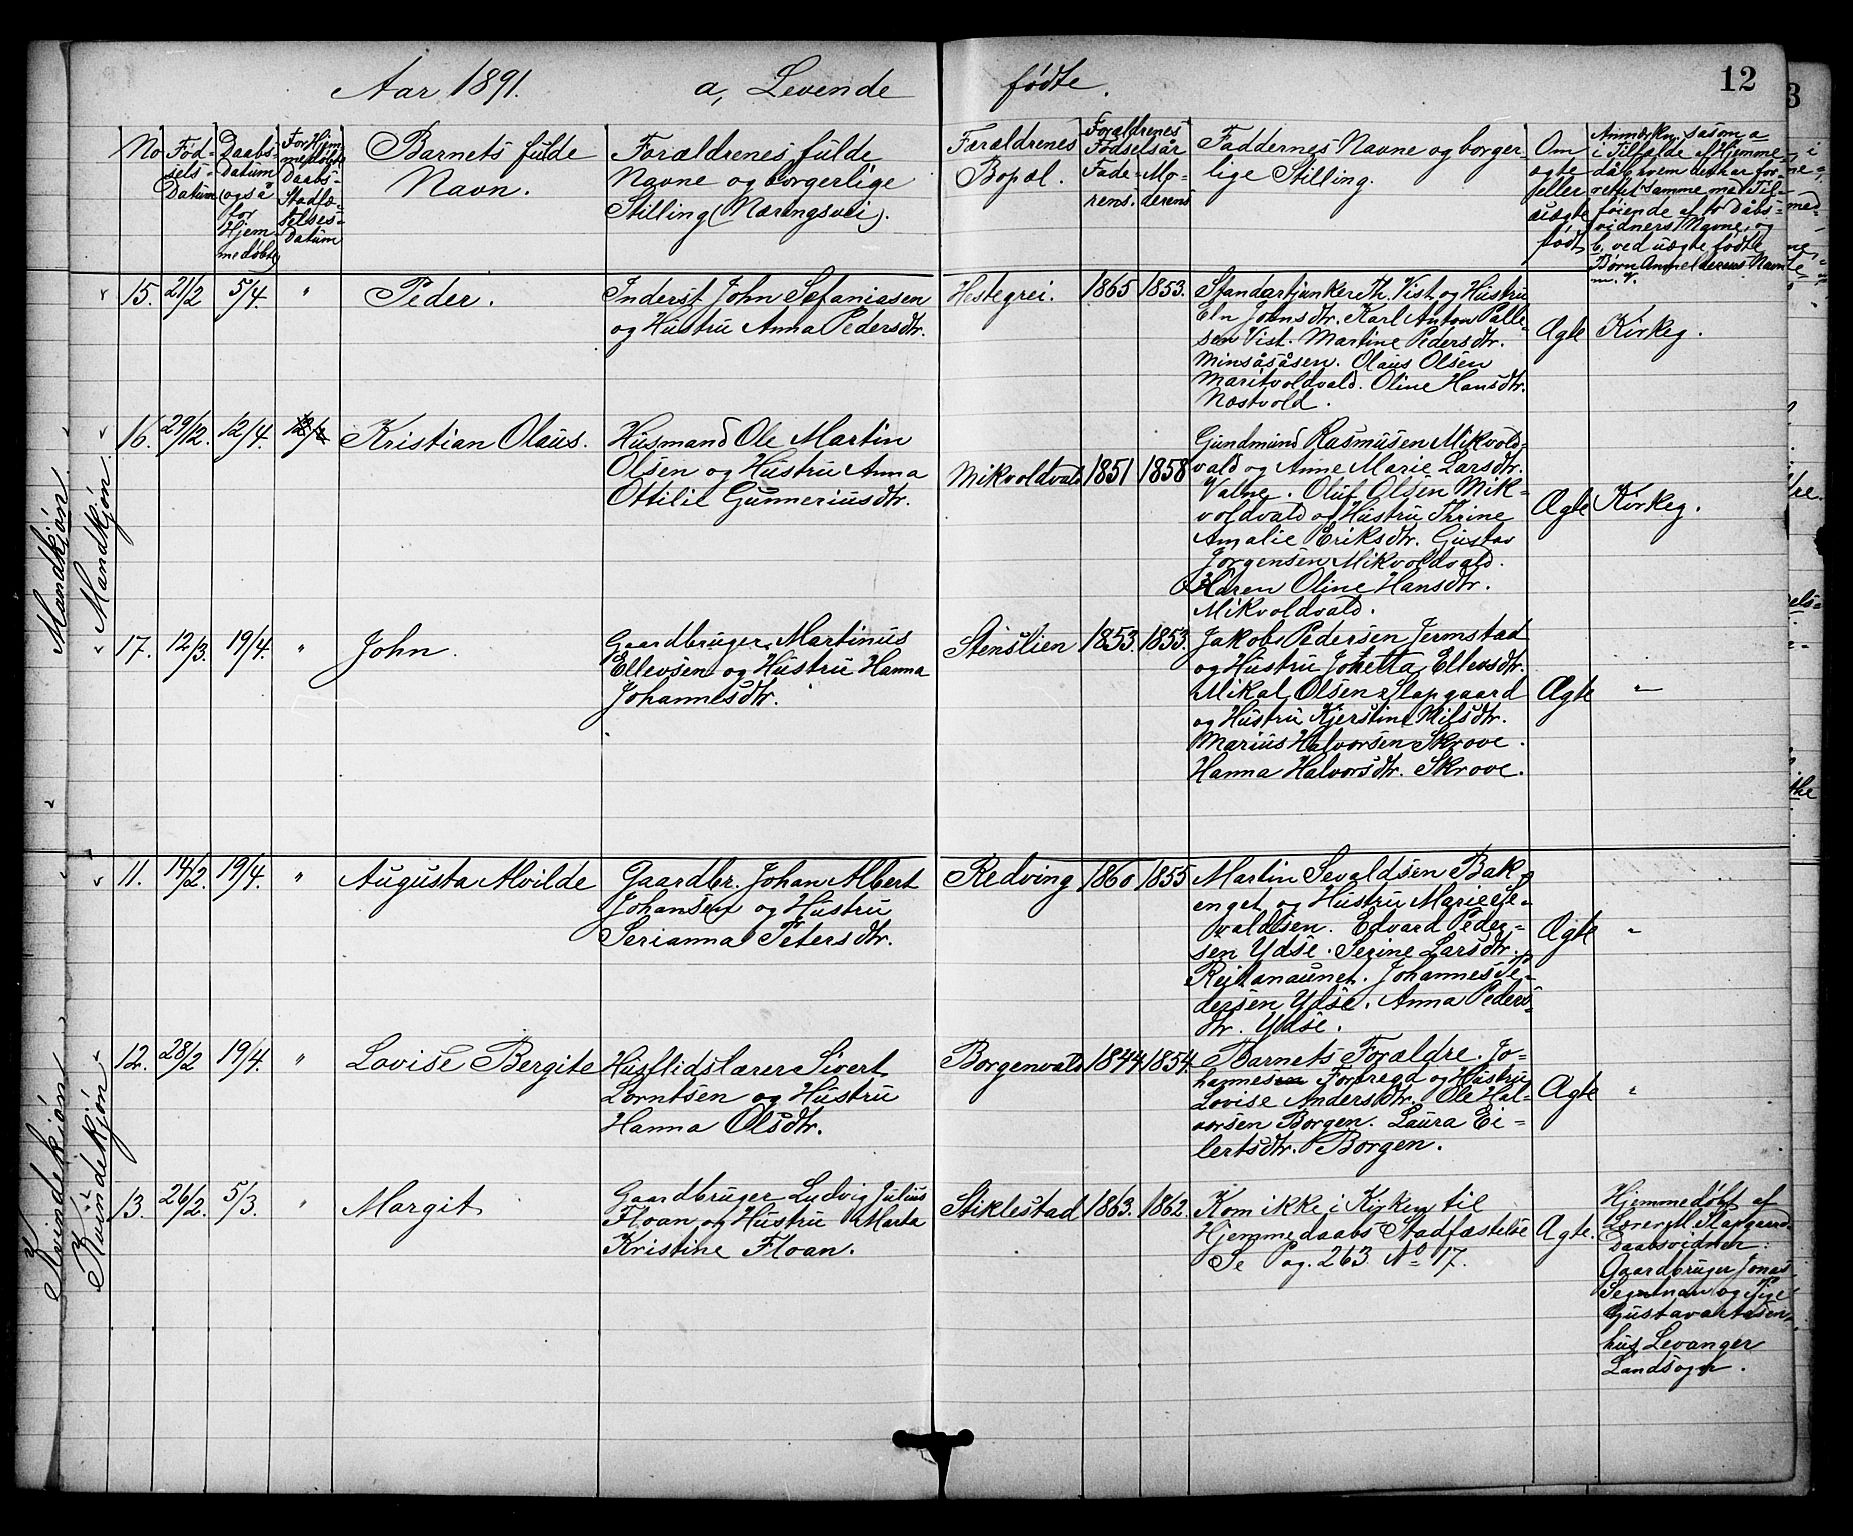 Aar 1891. a, Levende fødte. 12
No
Fød-
sels-
Datum
Daabs-
Datum
(også
for
Hjem-
medøbte)
For Hjem-
medøbte
Daabs-
Stadfæ-
stelses-
Datum
Barnets fulde
Navn.
Forældrenes fulde
Navne og borgerlige
Stilling (Næringsvei).
Forældrenes
Bopæl.
Forældrenes
Fødselsår
Fade-
rens.
Mo-
derens
Faddernes Navne og borger-
lige Stilling.
Om
ægte
eller
uægte
født
Anmærkn. såsom a
i Tilfælde af Hjemme-
dåb hvem der har for-
rettet samme med Til-
føiende af to Dåbs-
vidners Navne, og
b, ved uægte fødte
Børn Anmelderens Navn
m. V.
Mandkjøn.
Mandkjøn.
15. 21/2 5/4. " Peder.
Inderst John Sefaniasen
og Hustru Anna Pedersdtr.
Hestegrei. 1865 1853.
Standartjunker Th. Vist og Hustru
Eln Johnsdtr. Karl Anton Palle-
sen Vist. Martine Pedersdtr.
Minsåsåsen. Olaus Olsen
Maritvoldvald. Oline Hansdtr.
Næstvold.
Ægte Kirkeg.
16. 29/12. 12/4. Kristian Olaus.
Husmand Ole Martin
Olsen og Hustru Anna
Ottilie Gunneriusdtr.
Mikvoldvald 1851 1858
Gundmund Rasmusen Mikvold-
vald og Anne Marie Larsdtr.
Valne. Oluf Olsen Mik-
voldvald og Hustru Thrine
Amalie Eriksdtr. Gustav
Jørgensen Mikvoldvald.
Karen Oline Hansdtr.
Mikvoldvald.
Ægte Kirkeg.
17. 12/3. 19/4. " John.
Gaardbruger Martinus
Ellevsen og Hustru Hanna
Johannesdtr.
Stenslien 1853. 1853.
Jakob Pedersen Jermstad
og Hustru Johetta Ellevsdtr.
Mikal Olsen Slapgaard
og Hustru Kjerstine Nilsdtr.
Marius Halvorsen Skrove.
Hanna Halvorsdtr. Skrove.
Ægte "
Kvindekjøn
Kvindekjøn
11. 14/2. 19/4. " Augusta Alvilde
Gaardbr. Johan Albert
Johansen og Hustru
Serianna Petersdtr.
Redving 1860 1855
Martin Sevaldsen Bak-
enget og Hustru Marie Se-
valdsen. Edvard Peder-
sen Ydse. Serine Larsdtr.
Reitanaunet. Johannes Pe-
dersen Ydse. Anna Peders-
dtr. Ydse.
Ægte "
12. 28/2 19/4. " Lovise Bergite
Husflidslærer Sivert
Lorntsen og Hustru
Hanna Olsdtr.
Borgenvald 1844 1854.
Barnets Forældre. Jo-
hannes Forbregd og Hustru
Lovise Andersdtr. Ole Hal-
vorsen Borgen. Laura Ei-
lertsdtr. Borgen.
Ægte "
13. 26/2. 5/3. " Margit
Gaardbruger Ludvig Julius
Floan og Hustru Marta
Kristine Floan.
Stiklestad 1863. 1862.
Kom ikke i Kirken til
Hjemmedaabs Stadfæstelse
Se Pag. 263 No 17.
Ægte.
Hjemmedøbt af
Lærer M Slapgaard
Daabsvidner:
Gaardbruger Jonas
Segtnan og Pige
Gustava Aasen-
hus Levanger
Landsogn.